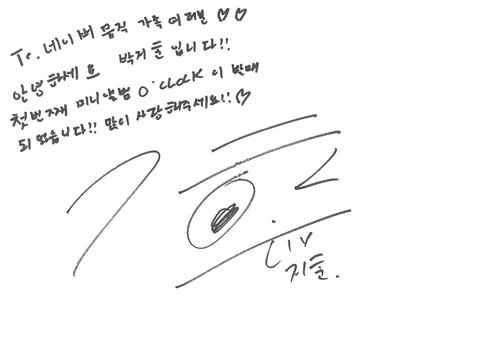 To. 네이버 뮤직 가족 여러분 ♡♡
안녕하세요 박지훈 입니다!!
첫번째 미니앨범 O'CLOCK 이 발매
되었습니다!! 많이 사랑해주세요!! ♡
지훈.